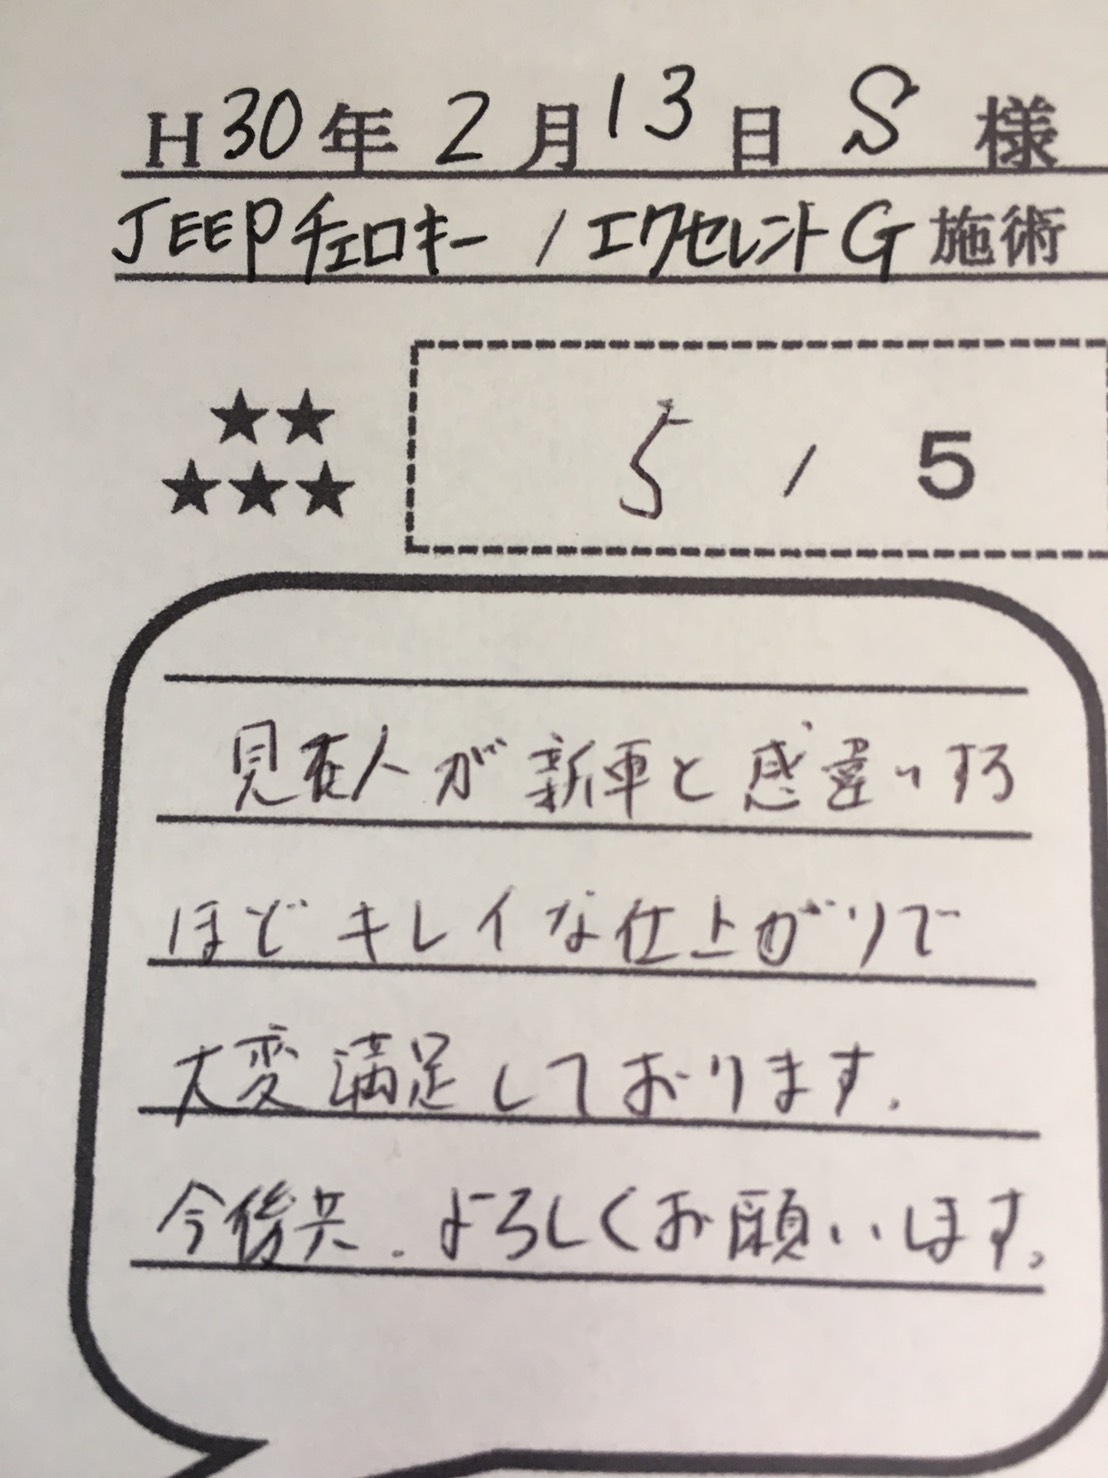 H30年2月13日 S 様
JEEPチェロキー / エクセレントG 施術
★★
★★★
5 / 5
見た人が新車と感違いする
ほどキレイな仕上がりで
大変満足しております.
今後共.よろしくお願いします。